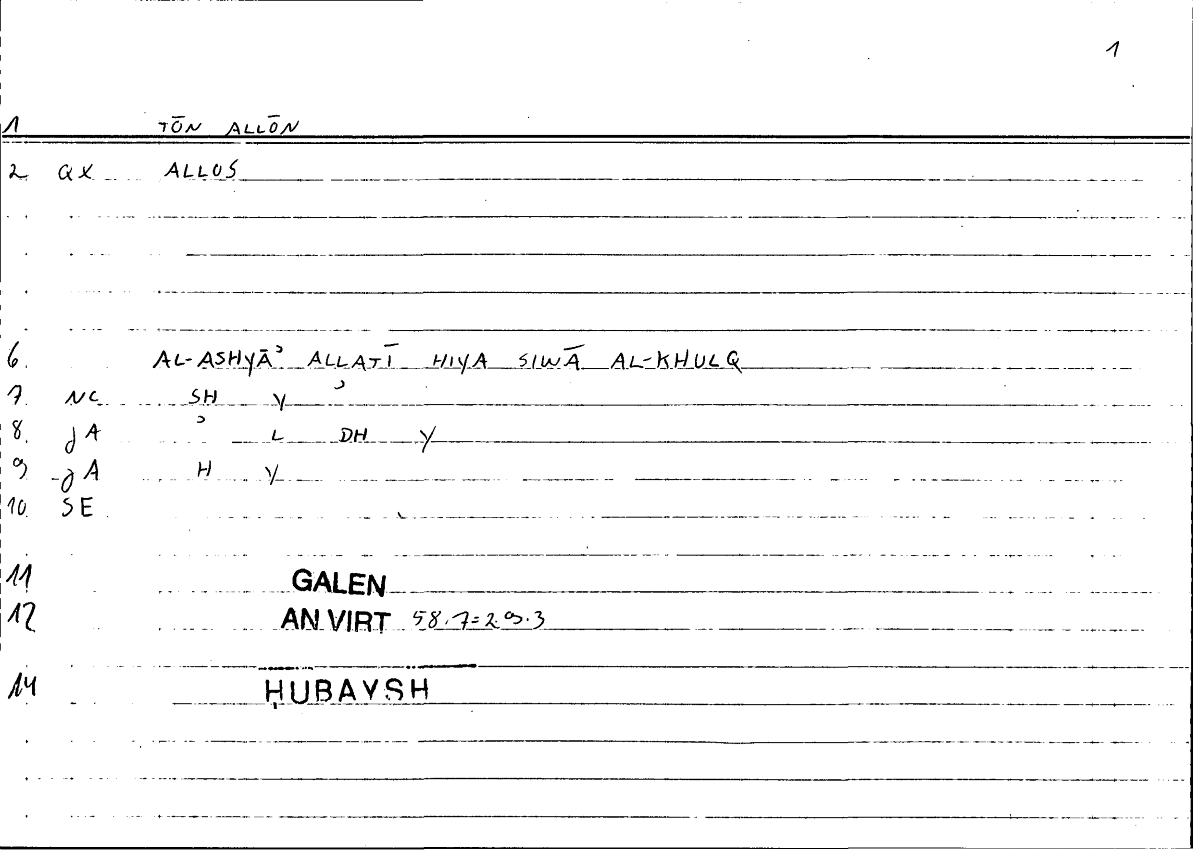 1
1 TŌN ALLŌN
2 QX ALLOS
6 AL-ASHYĀʾ ALLATĪ HIYA SIWĀ AL-KHULQ
7 NC SH Y ʾ
8. JA ʾ L DH Y
9 JA H Y
10. SE
11 GALEN
12 AN VIRT 58.7=29.3
14 ḤUBAYSH